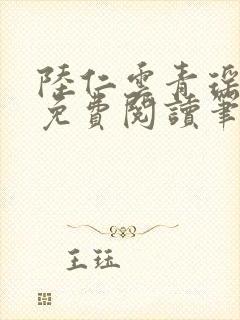 陸仁雲青瑶
免費閱讀筆
王珏